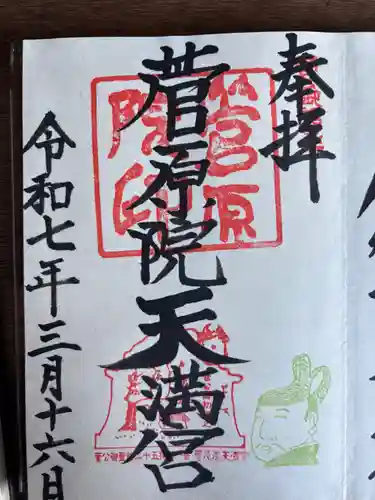 奉拝
菅原院天満宮
令和七年三月十六日
菅原
院印